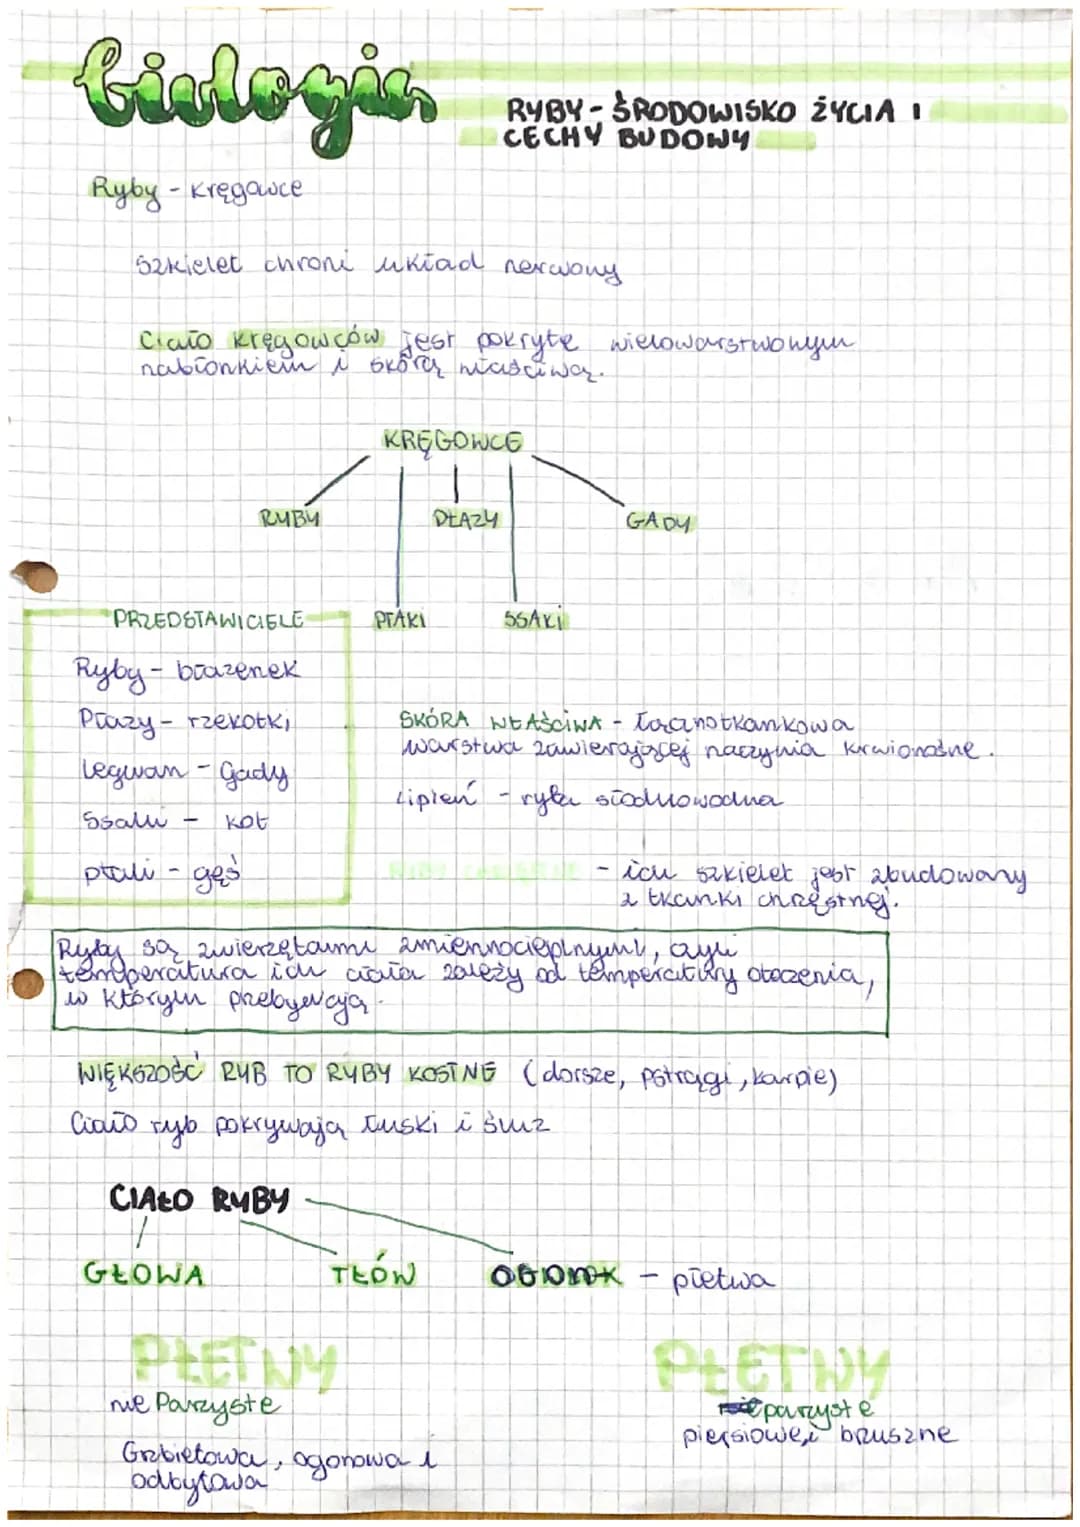 biologia
RYBY - ŚRODOWISKO ŻYCIA I
CECHY BUDOWY
Ryby - kręgowce
Szkielet chroni układ nerwowy
Ciało kręgowców jest pokryte wielowarstwowym
nabłonkiem i skórą właściwą.
KRĘGOWCE
RYBY
PŁAZY
GADY
PTAKI
SSAKI
PRZEDSTAWICIELE
Ryby - błazenek
Płazy - rzekotki
legwan - Gady
Ssaki - kot
ptaki - gęś
SKÓRA WŁAŚCIWA - łącznotkankowa
warstwa zawierającej naczynia krwionośne.
Lipień - ryba słodkowodna
RYBY CHRZĘSTNE - ich szkielet jest zbudowany
z tkanki chrzęstnej.
Ryby są zwierzętami zmiennocieplnymi, czyli
temperatura ich ciała zależy od temperatury otoczenia,
w którym przebywają.
WIĘKSZOŚĆ RYB TO RYBY KOSTNE (dorsze, pstrągi, karpie)
Ciało ryb pokrywają łuski i śluz
CIAŁO RYBY
GŁOWA
TŁÓW
OGONEK - płetwa
PŁETWY
nie Parzyste
Grzbietowa, ogonowa i
odbytowa
PŁETWY
parzyste
piersiowe i bruszne